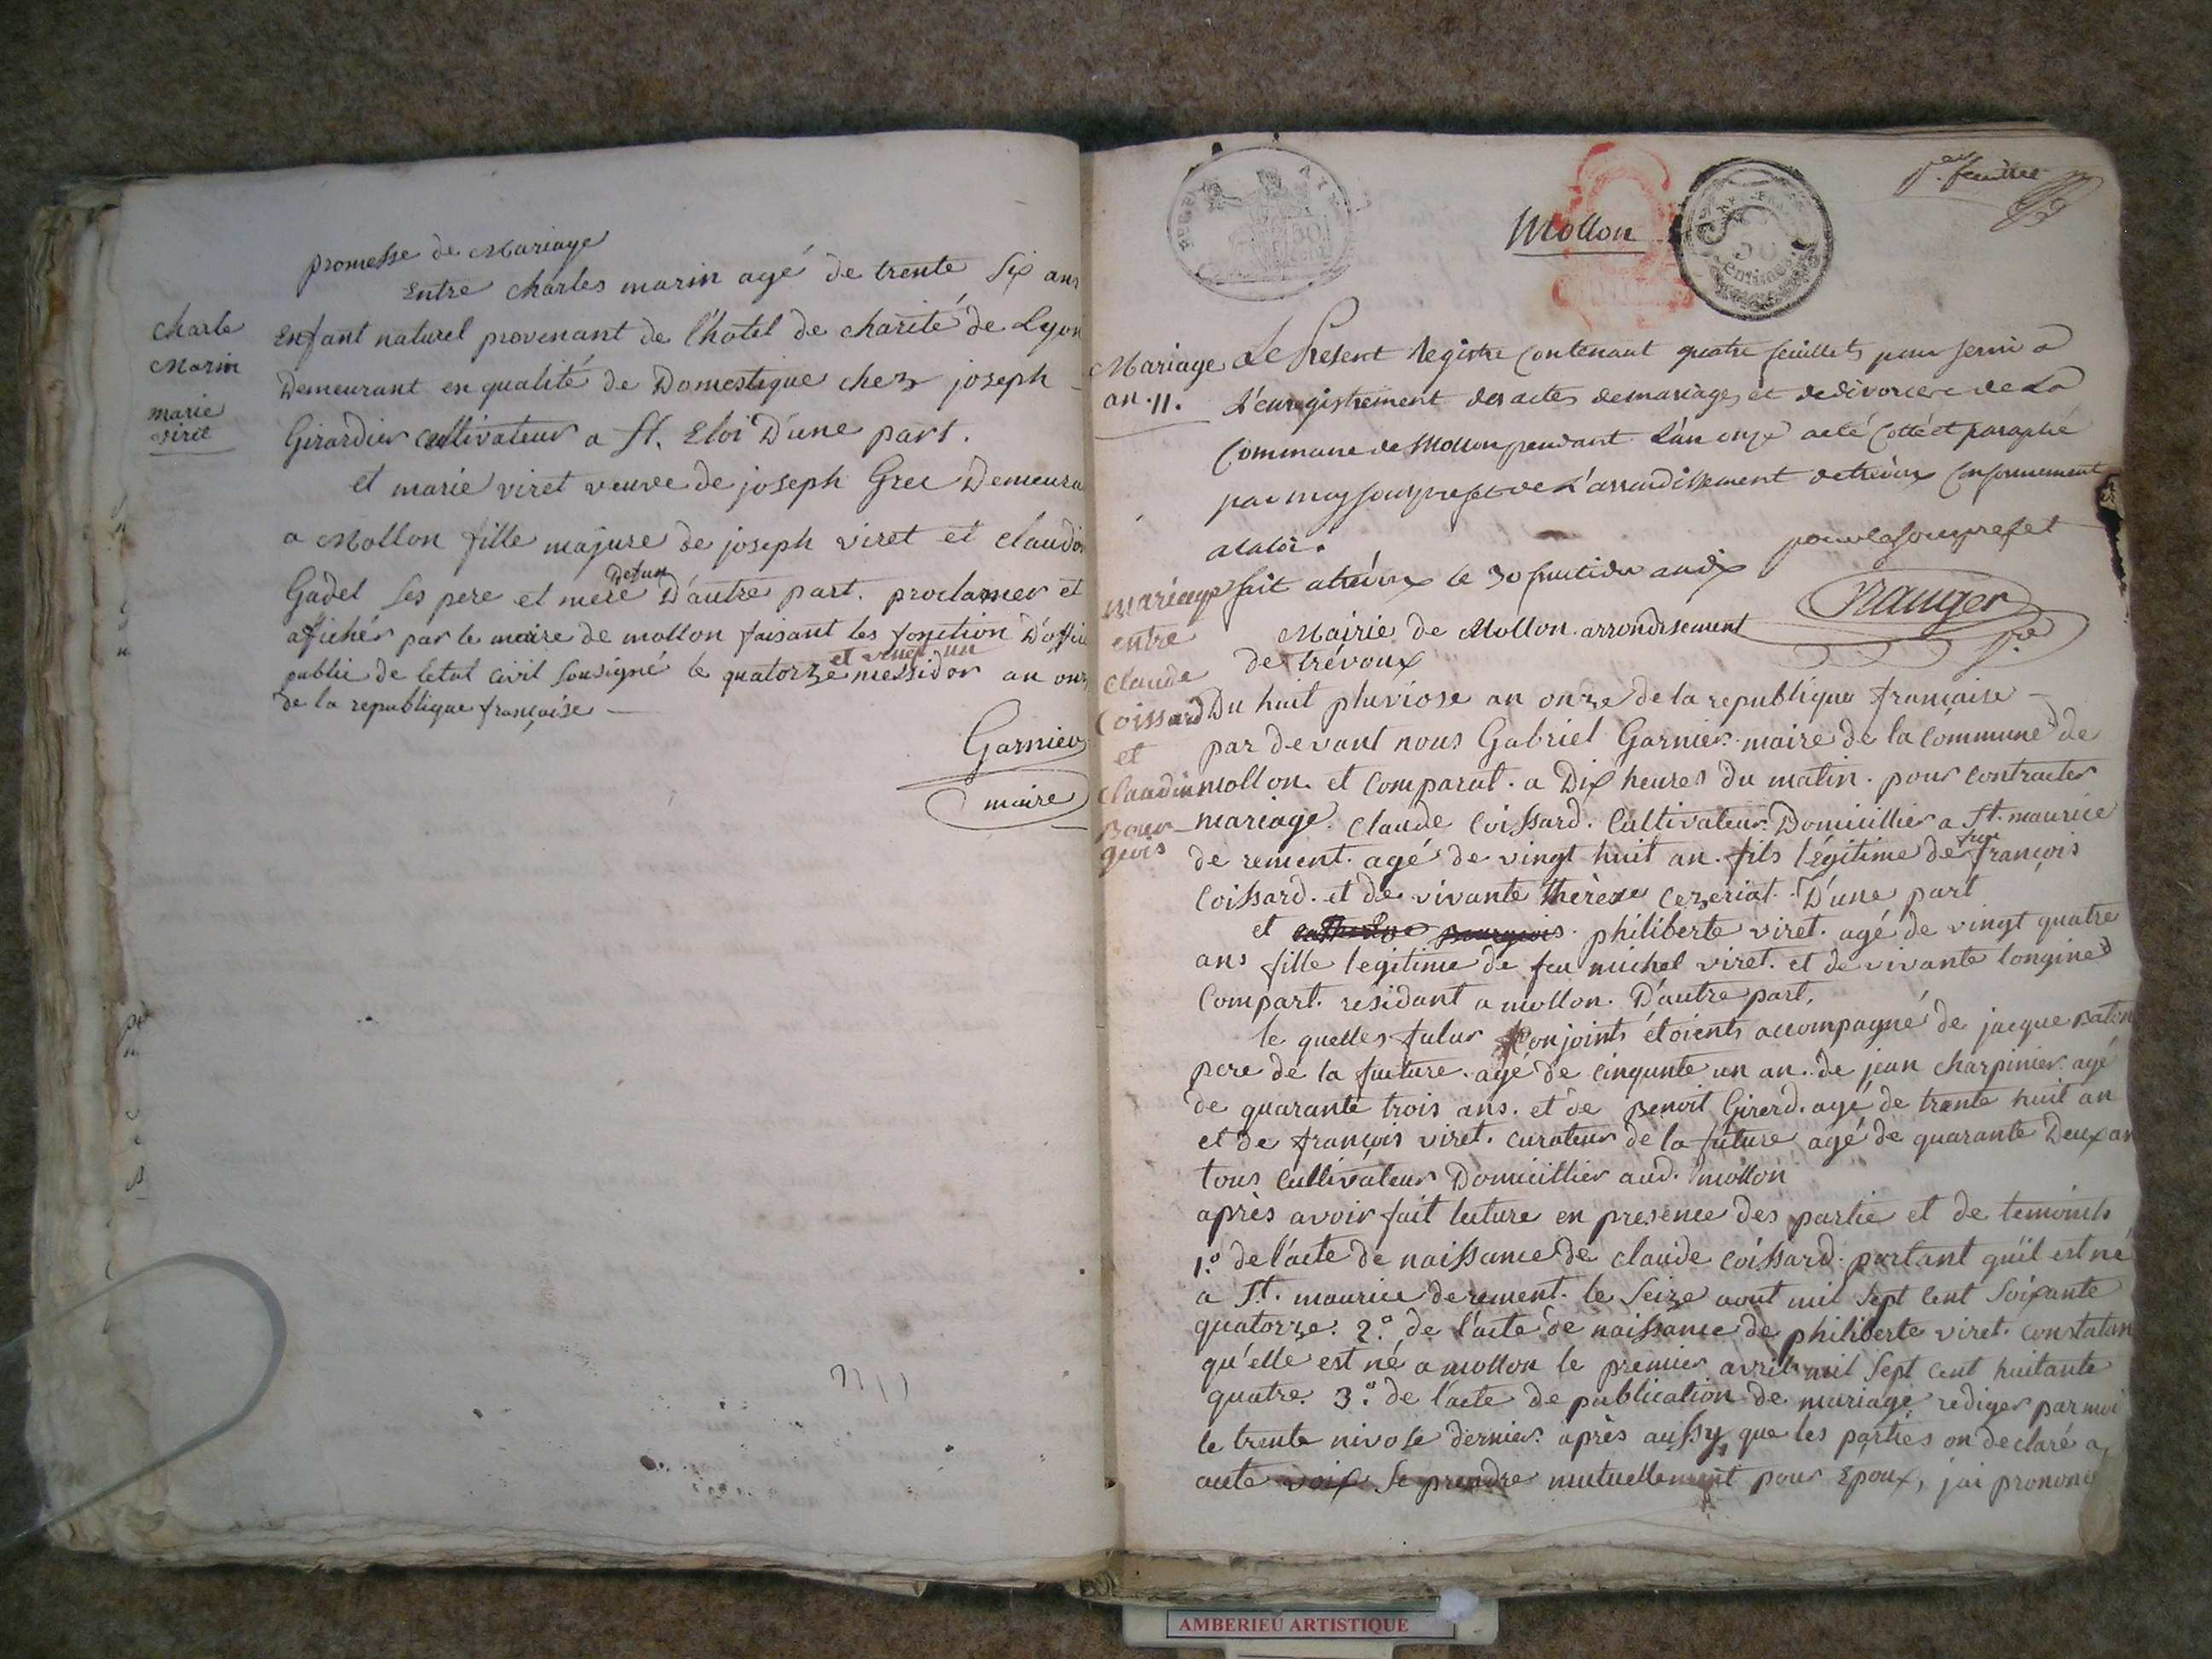 promesse de Mariage
Entre charles marin agé de trente six ans
Charle
Marin
marie
viret
Enfant naturel provenant de l'hotel de charité de Lyon
Demeurant en qualité de Domestique chez joseph
Girardier cultivateur a St. Eloi D'une part.
et marie viret veuve de joseph Grec Demeura
a Mollon fille majure de joseph viret et claudi
Gadel ses pere et mere defun D'autre part. proclamer et
afichér par le maire de mollon faisant les fonction D'offi
public de letat civil sousigné le quatorze et vingt un messidor an onz
de la republique française
Garnier
maire
per. feuillet
Mollon
50
centimes
Mariage
an. 11.
Le Present Registre Contenant quatre feuillets pour servir a
L'enregistrement des actes de mariages et de divorce de La
Commune de Mollon pendant L'an onze a été Cotté et paraphé
par moy sous prefet de L'arrondissement de trévoux Conformement
a la loi.
fait a trévoux le 30 fructidor an dix
pour le sous prefet
mariage
entre
claude
Coissard
et
claudin
Bour
geois
Mairie de Mollon arrondisement
de trévoux
Du huit pluviose an onze de la republique française
par devant nous Gabriel Garnier maire de la commune de
mollon. et comparut. a Dix heures du matin. pour contracter
mariage. claude Coissard. Cultivateur Domicillier a St. maurice
de rement. agé de vingt huit an. fils légitime de feu françois
Coissard. et de vivante thérèse cezeriat. D'une part
et catherine Bourgeois. philiberte viret. agé de vingt quatre
ans fille legitime de feu michel viret. et de vivante longine
Compart. résidant a mollon. D'autre part.
le quelles futur Conjoints étoients accompagné de jacque Baton
pere de la future. agé de cinqunte un an. de jean charpinier agé
de quarante trois ans. et de Benoit Girerd. agé de trante huit an
et de françois viret. curateur de la future agé de quarante Deux an
tous Cultivateur Domicillier aud. mollon
après avoir fait lecture en presence des partie et de temoints
1.° de l'acte de naissance de claude Coissard. portant qu'il est né
a St. maurice de rement. le seize aout mil sept cent soixante
quatorze. 2.° de l'acte de naissance de philiberte viret. constatan
qu'elle est né a mollon le premier avril mil sept cent huitante
quatre. 3.° de l'acte de publication de mariage rediger par moi
le trente nivose dernier. après aussy que les parties on declaré a
aute voix se prendre mutuellement pour Epoux, j'ai prononc
AMBERIEU ARTISTIQUE